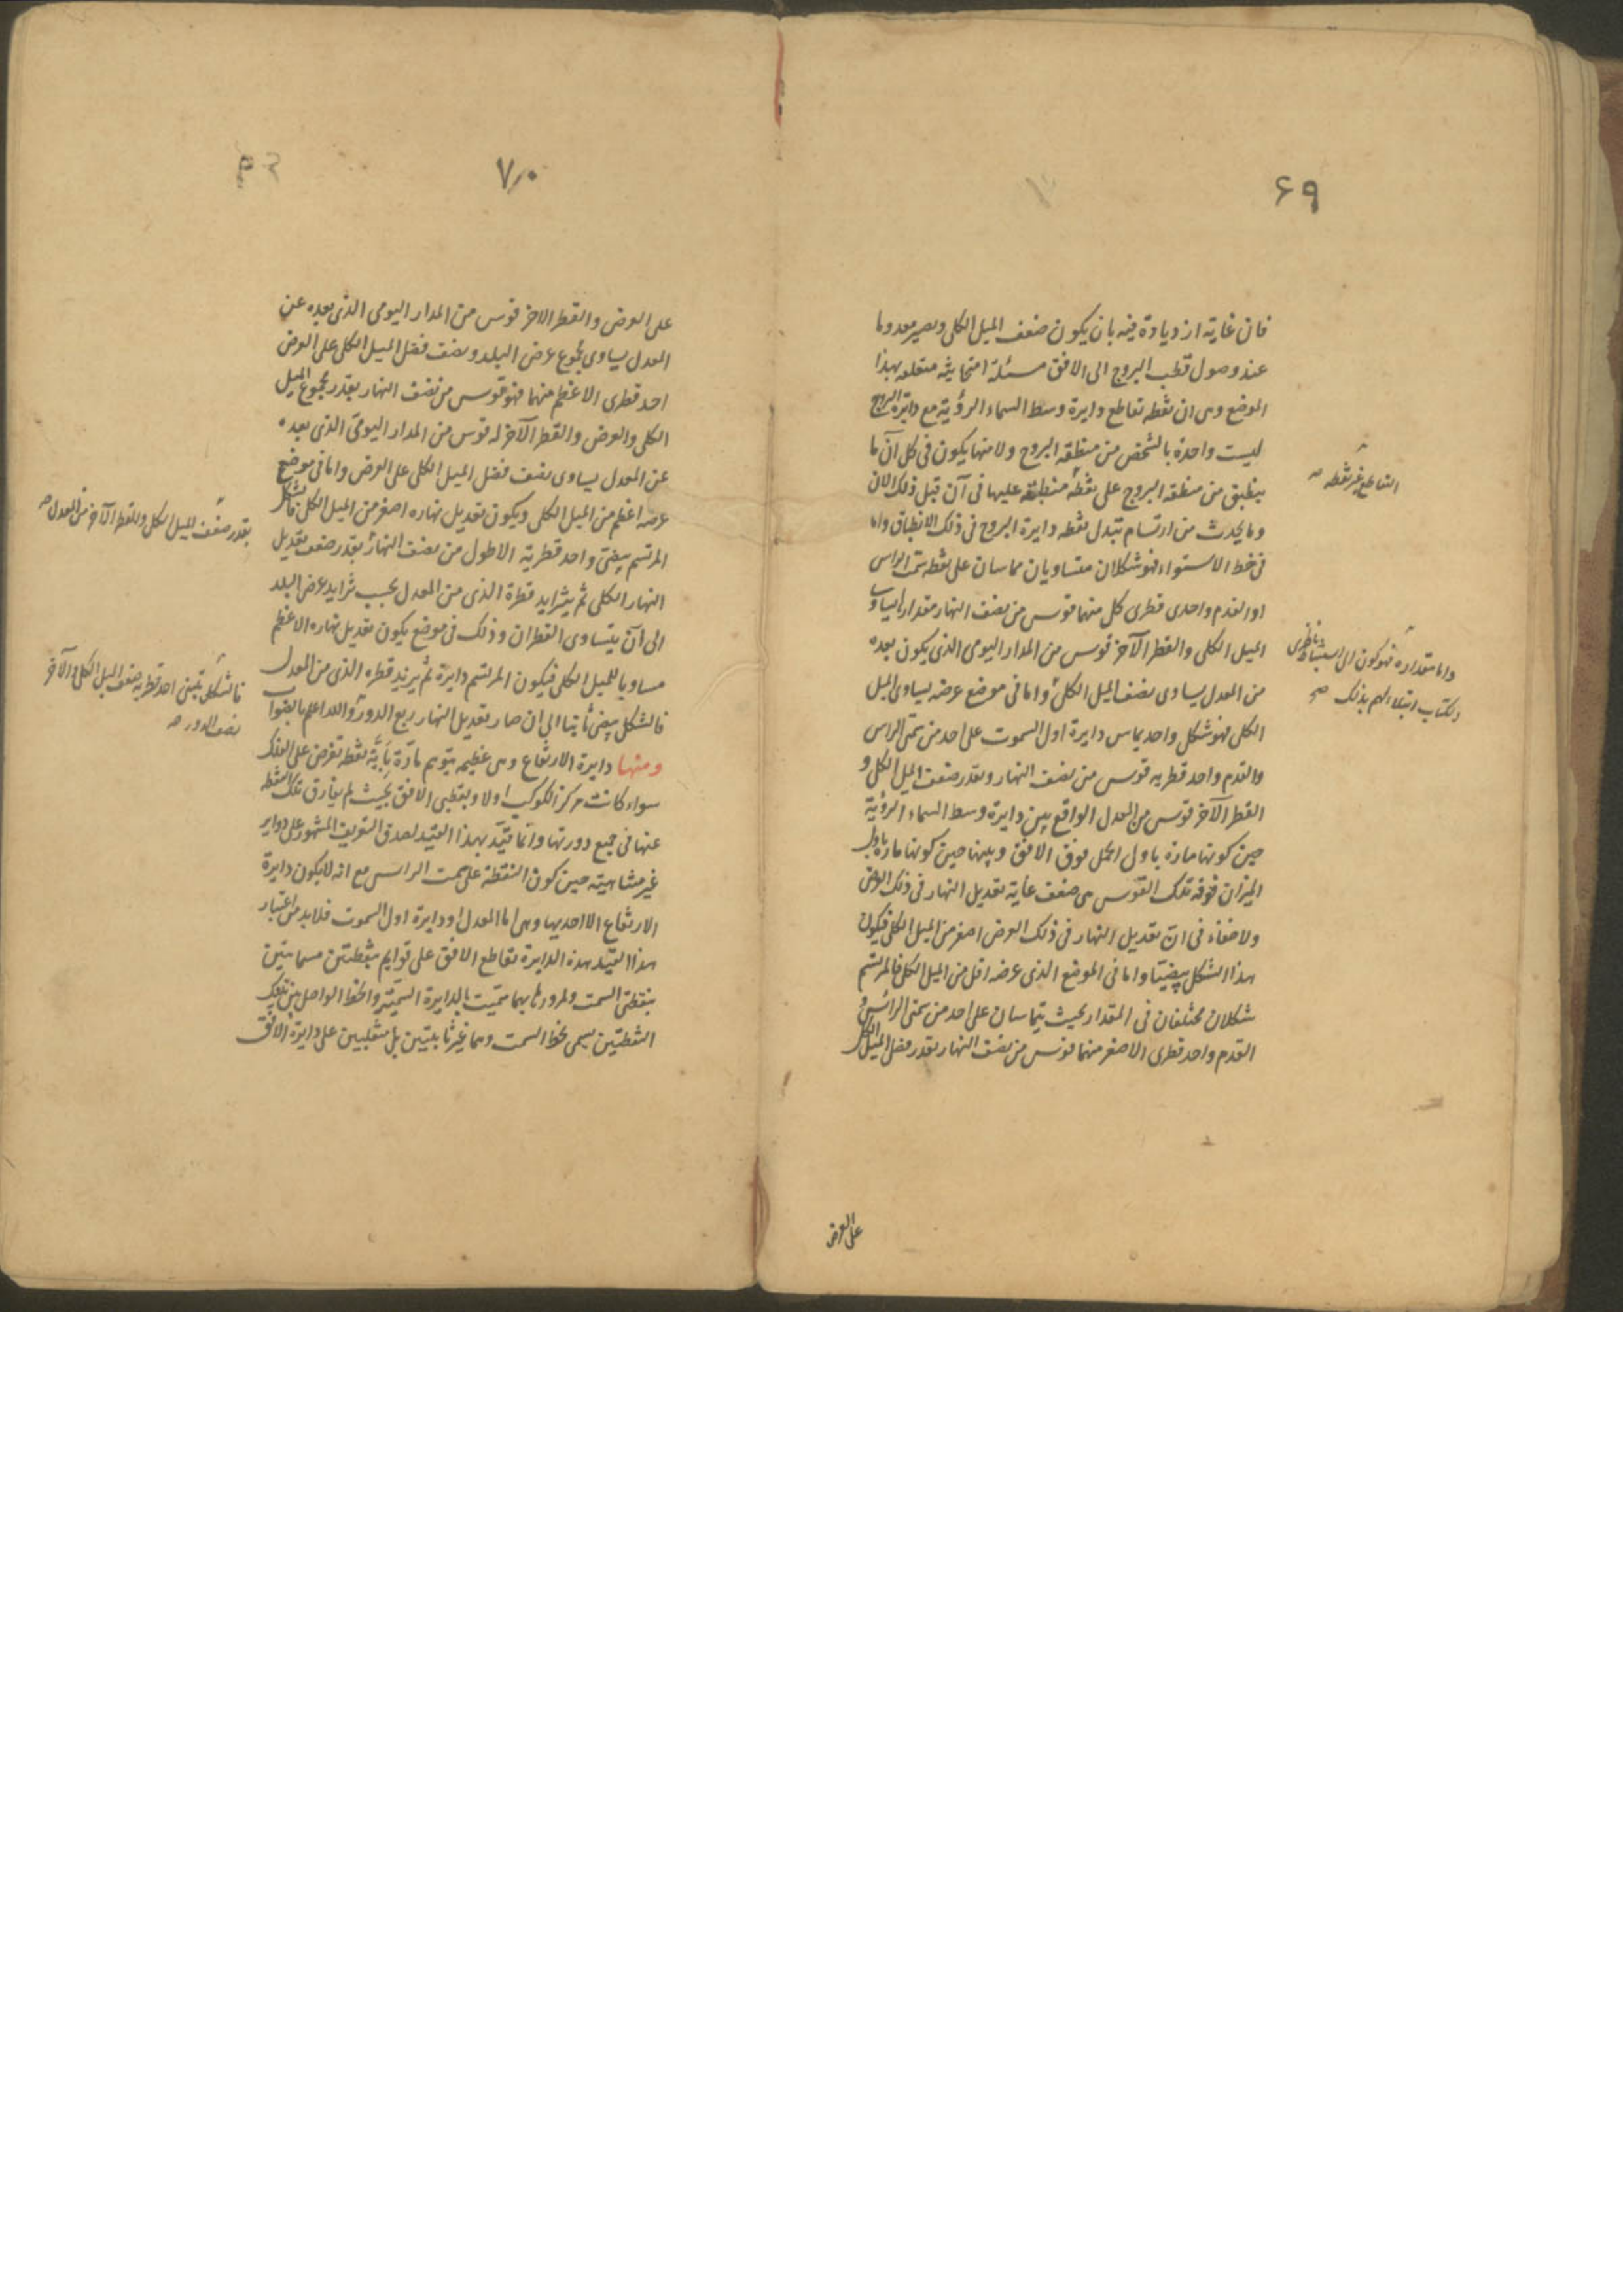 ۶۹
فان غاية ازدياده فيه بان يكون ضعف الميل الكلى ويصير معدوما
عند وصول قطب البروج الى الافق مسئلة امتحانية متعلقه بهذا
الموضع وهى ان نقطه تقاطع دايرة وسط السماء الرؤية مع دايرة البروج
ليست واحدة بالشخص من منطقه البروج ولا منها يكون فى كل آن ما
ينطبق من منطقه البروج على نقطة منطبقة عليها فى آن قبل ذلك الان
وما يحدث من ارتسام تبدل نقطه دايرة البروج فى ذلك الانطباق واما
فى خط الاستواء فهو شكلان متساويان مماسان على نقطه سمت الراس
او القدم واحدى قطرى كل منهما قوس من نصف النهار مقدارها يساوى
الميل الكلى والقطر الآخر قوس من المدار اليومى الذى يكون بعده
من المعدل يساوى نصف الميل الكلى واما فى موضع عرضه يساوى الميل
الكلى فهو شكل واحد يماس دايرة اول السموت على احد من سمتى الراس
والقدم واحد قطريه قوس من نصف النهار وبقدر ضعف الميل الكلى و
القطر الآخر قوس من المعدل الواقع بين دايرة وسط السماء الرؤية
حين كونها مارة باول الحمل فوق الافق وبينها حين كونها مارة باول
الميزان فوقه تلك القوس هى ضعف غاية تعديل النهار فى ذلك العرض
ولا خفاء فى ان تعديل النهار فى ذلك العرض اصغر من الميل الكلى فيكون
هذا الشكل بيضيا واما فى الموضع الذى عرضه اقل من الميل الكلى فالمرتسم
شكلان مختلفان فى المقدار بحيث يتماسان على احد من سمتى الراس و
القدم واحد قطرى الاصغر منهما قوس من نصف النهار بقدر فضل الميل الكلى
التقاطع غير نقطه
واما مقداره فهو كون الى استنباط ناظرى
الكتاب ابتلاء لهم بذلك صح
على العرض
۷۰
على العرض والقطر الاخر قوس من المدار اليومى الذى بعده عن
المعدل يساوى مجموع عرض البلد ونصف فضل الميل الكلى على العرض
احد قطرى الاعظم منهما فهو قوس من نصف النهار بقدر مجموع الميل
الكلى والعرض والقطر الآخر له قوس من المدار اليومى الذى بعده
عن المعدل يساوى نصف فضل الميل الكلى على العرض واما فى موضع
عرضه اعظم من الميل الكلى ويكون تعديل نهاره اصغر من الميل الكلى فالشكل
المرتسم بيضى واحد قطريه الاطول من نصف النهار بقدر ضعف تعديل
النهار الكلى ثم يتزايد قطره الذى من المعدل بحسب تزايد عرض البلد
الى ان يتساوى القطران وذلك فى موضع يكون تعديل نهاره الاعظم
مساويا للميل الكلى فيكون المرتسم دايرة ثم يزيد قطره الذى من المعدل
فالشكل بيضى ثانيا الى ان صار تعديل النهار ربع الدور والله اعلم بالصواب
ومنها دايرة الارتفاع وهى عظيمه يتوهم مارّة بأيّة نقطه تفرض على الفلك
سواء كانت مركز الكوكب اولا وبقطبى الافق بحيث لم يفارق تلك النقطه
عنها فى جميع دورتها وانما قيّد بهذا القيد لصدق التعريف المشهور على دواير
غير متناهية حين كون النقطة على سمت الراس مع انه لا يكون دايرة
الارتفاع الا احديها وهى اما المعدل او دايرة اول السموت فلا بد من اعتبار
هذا القيد هذه الدايرة تقاطع الافق على قوايم بنقطتين مسماتين
بنقطتى السمت ولمرورها بهما سميّت بالدايرة السمتيّة والخط الواصل بين تلك
النقطتين يسمى بخط السمت وهما غير ثابتتين بل منقلبين على دايرة الافق
بقدر ضعف الميل الكلى والقطر الآخر من المعدل
فالشكل بيضى احد قطريه ضعف الميل الكلى والآخر
نصف الدور